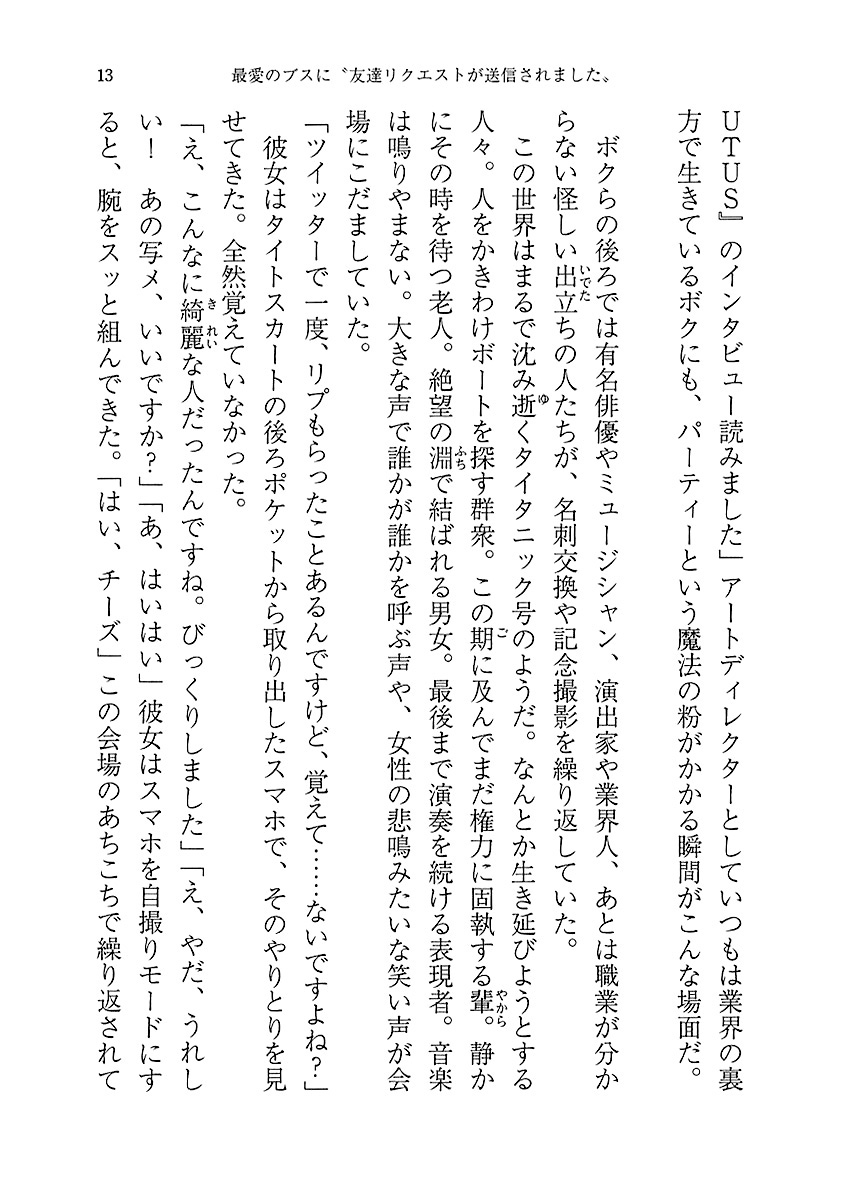 13
最愛のブスに〝友達リクエストが送信されました〟
UTUS』のインタビュー読みました」アートディレクターとしていつもは業界の裏
方で生きているボクにも、パーティーという魔法の粉がかかる瞬間がこんな場面だ。
ボクらの後ろでは有名俳優やミュージシャン、演出家や業界人、あとは職業が分か
らない怪しい出立ちの人たちが、名刺交換や記念撮影を繰り返していた。
この世界はまるで沈み逝くタイタニック号のようだ。なんとか生き延びようとする
人々。人をかきわけボートを探す群衆。この期に及んでまだ権力に固執する輩。静か
にその時を待つ老人。絶望の淵で結ばれる男女。最後まで演奏を続ける表現者。音楽
は鳴りやまない。大きな声で誰かが誰かを呼ぶ声や、女性の悲鳴みたいな笑い声が会
場にこだましていた。
「ツイッターで一度、リプもらったことあるんですけど、覚えて……ないですよね?」
彼女はタイトスカートの後ろポケットから取り出したスマホで、そのやりとりを見
せてきた。全然覚えていなかった。
「え、こんなに綺麗な人だったんですね。びっくりしました」「え、やだ、うれし
い! あの写メ、いいですか?」「あ、はいはい」彼女はスマホを自撮りモードにす
ると、腕をスッと組んできた。「はい、チーズ」この会場のあちこちで繰り返されて